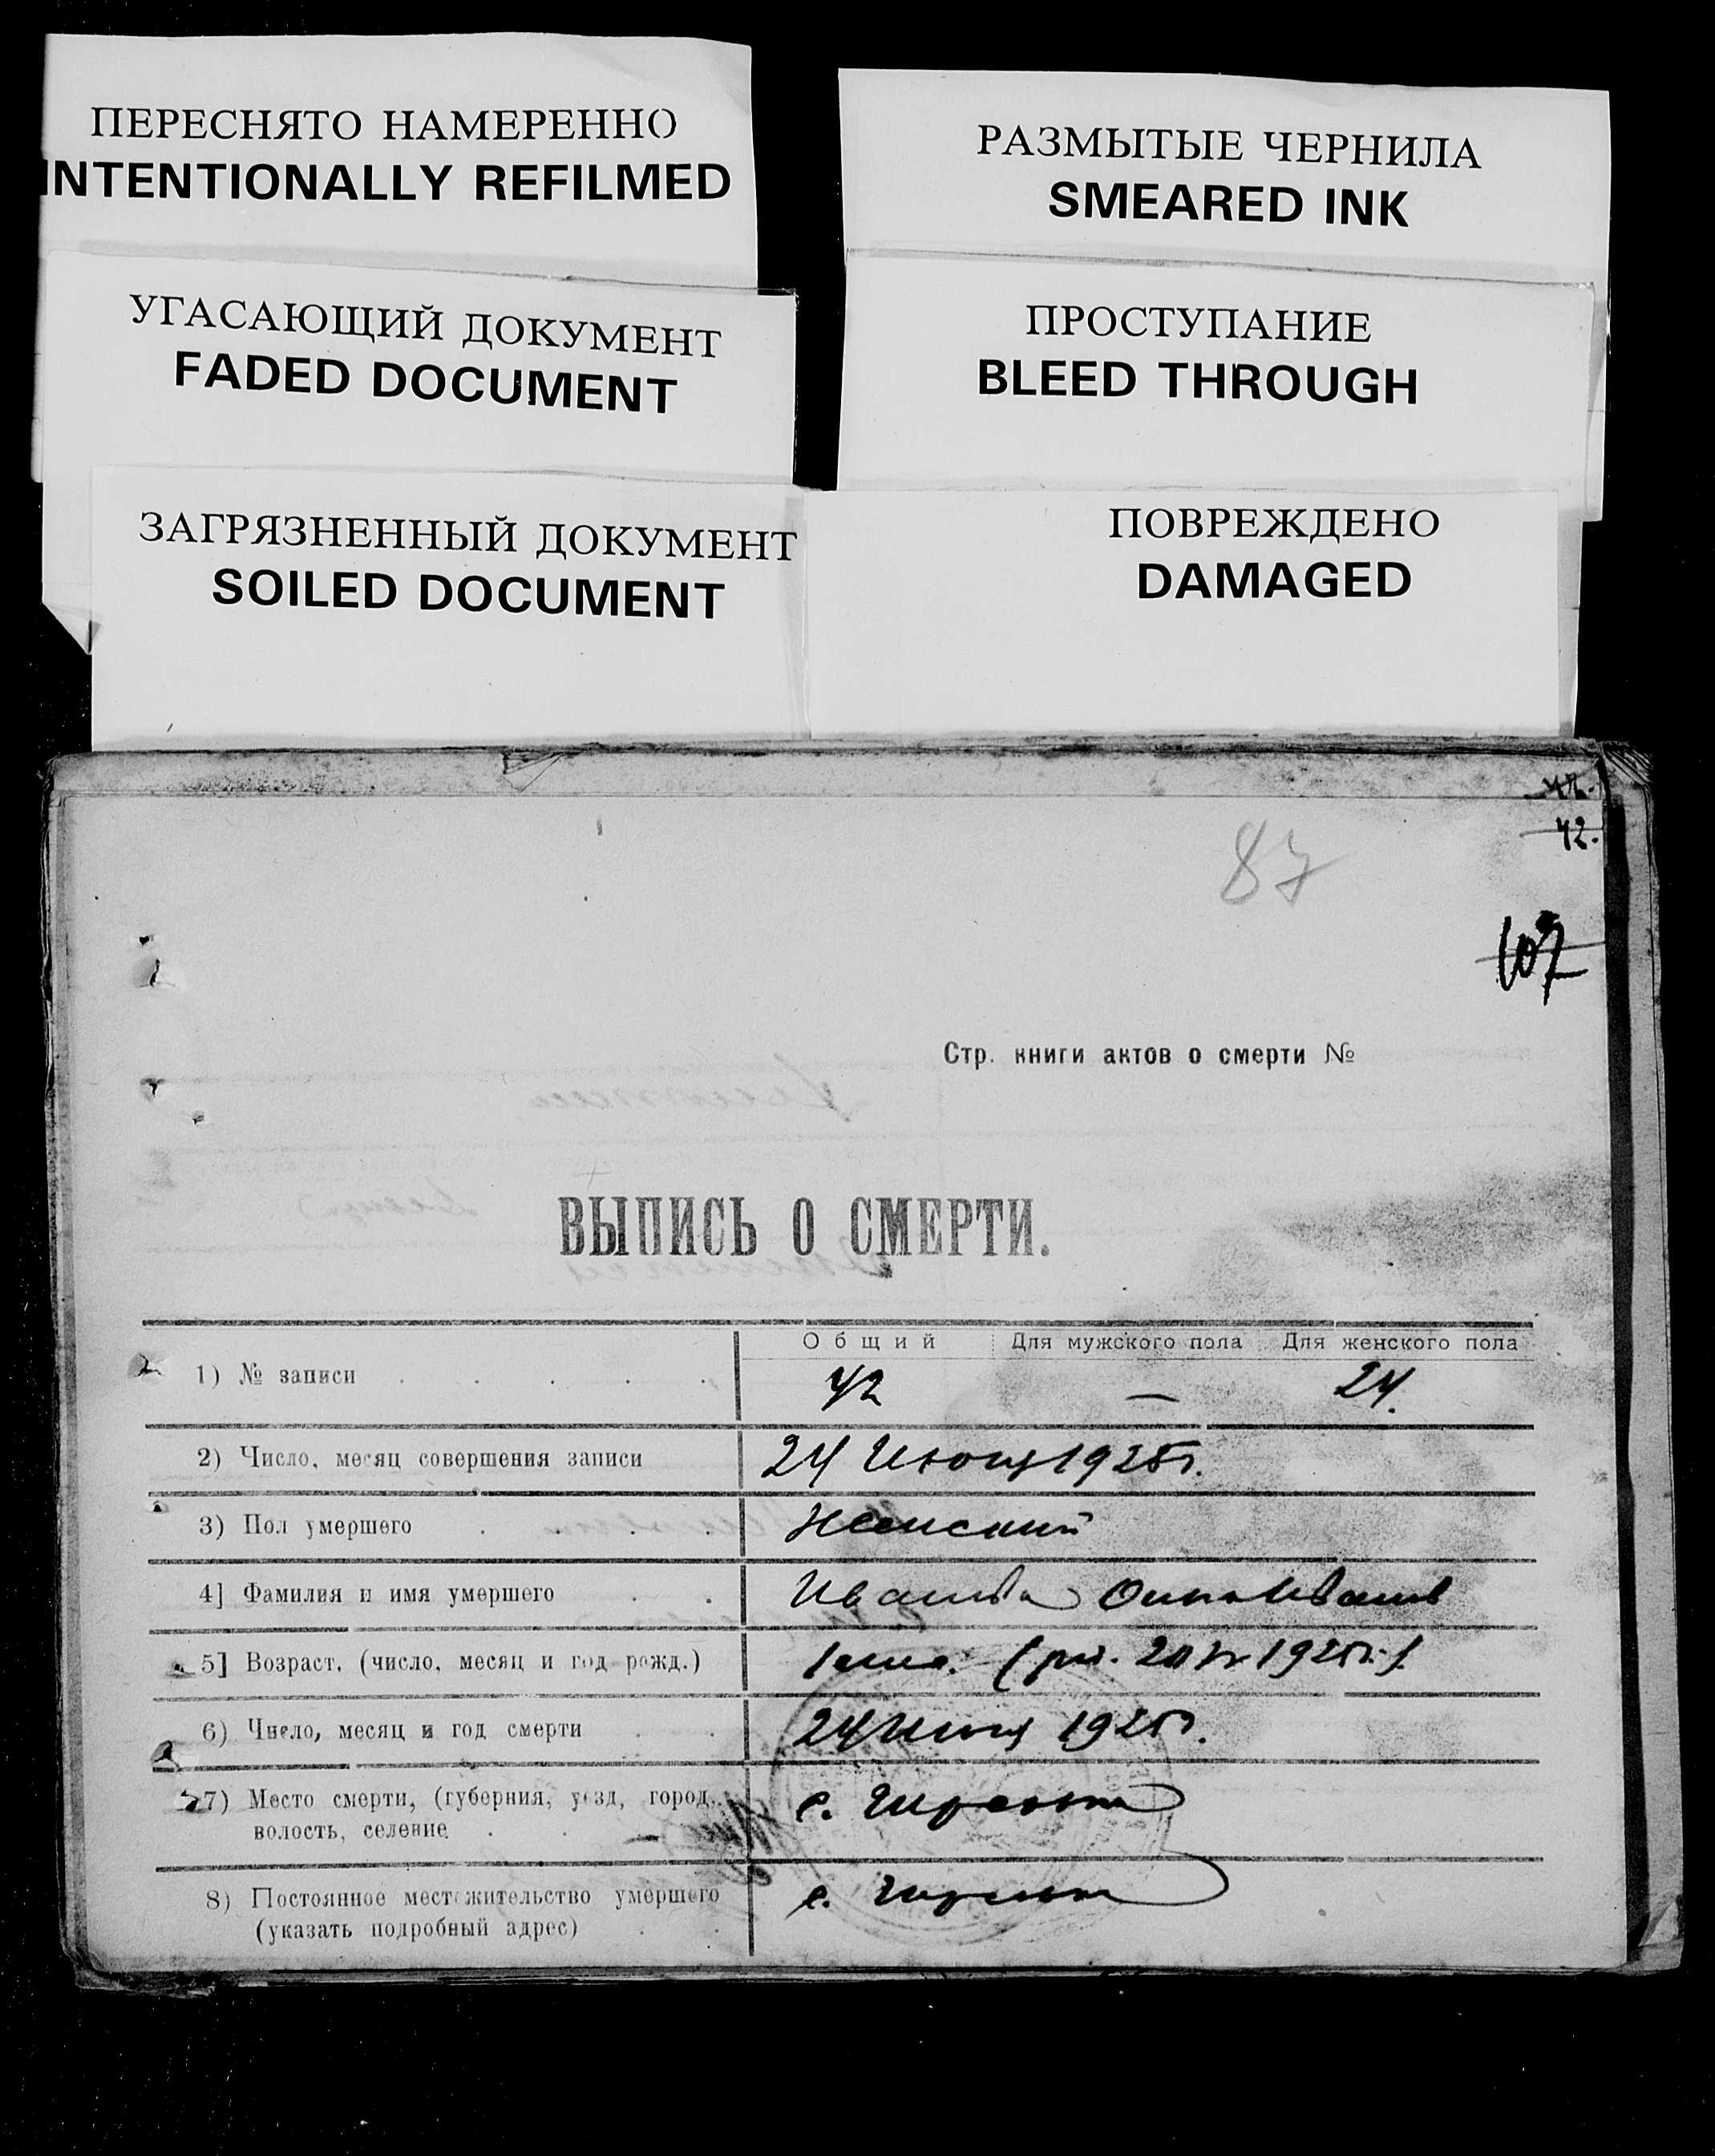 ПЕРЕСНЯТО НАМЕРЕННО
INTENTIONALLY REFILMED
РАЗМЫТЫЕ ЧЕРНИЛА
SMEARED INK
УГАСАЮЩИЙ ДОКУМЕНТ
FADED DOCUMENT
ПРОСТУПАНИЕ
BLEED THROUGH
ЗАГРЯЗНЕННЫЙ ДОКУМЕНТ
SOILED DOCUMENT
ПОВРЕЖДЕНО
DAMAGED
42.
87
107
Стр. книги актов о смерти №
ВЫПИСЬ О СМЕРТИ.
Общий Для мужского пола Для женского пола
1) № записи 42 — 24.
2) Число, месяц совершения записи 24 Июня 1925г.
3) Пол умершего Женский
4] Фамилия и имя умершего Иванова
5] Возраст, (число, месяц и год рожд.) 1925г.
6) Число, месяц и год смерти 24 Июня 1925г.
7) Место смерти, (губерния, уезд, город, с.
волость, селение
8) Постоянное местожительство умершего с.
(указать подробный адрес)